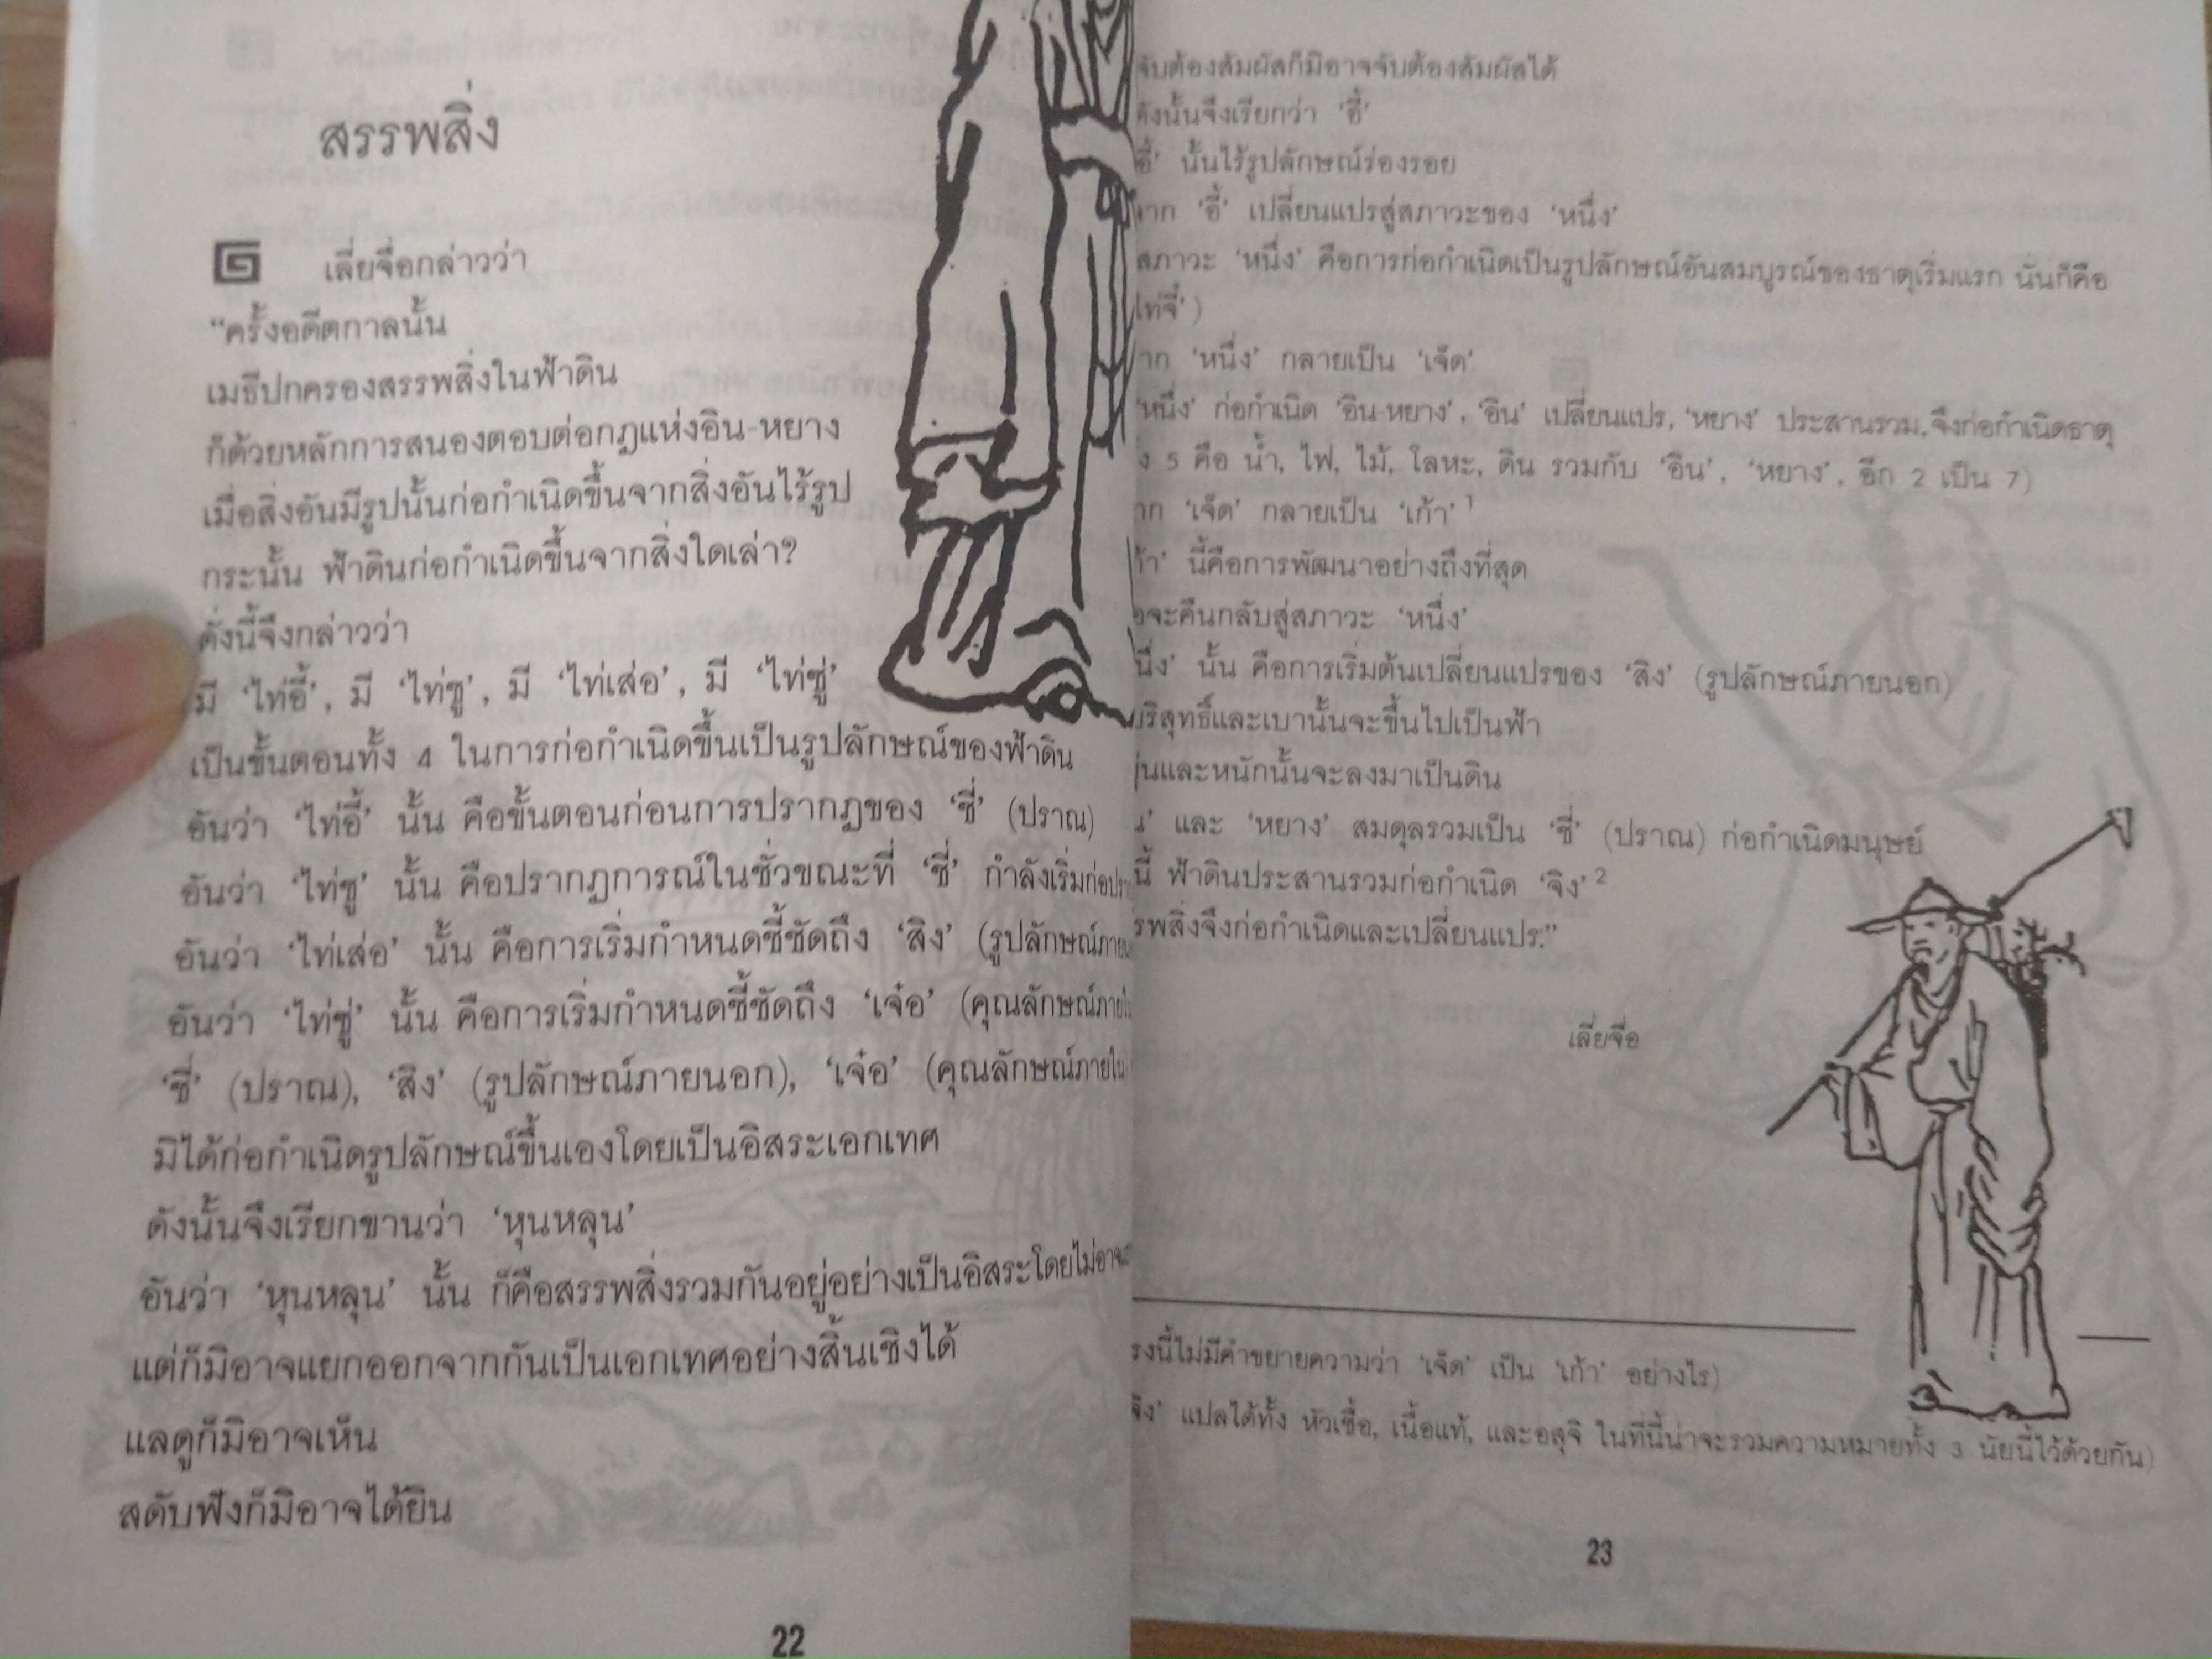 สรรพสิ่ง
เลี่ยจื่อกล่าวว่า
“ครั้งอดีตกาลนั้น
เมธีปกครองสรรพสิ่งในฟ้าดิน
ก็ด้วยหลักการสนองตอบต่อกฎแห่งอิน-หยาง
เมื่อสิ่งอันมีรูปนั้นก่อกำเนิดขึ้นจากสิ่งอันไร้รูป
กระนั้น ฟ้าดินก่อกำเนิดขึ้นจากสิ่งใดเล่า?
ดั่งนี้จึงกล่าวว่า
มี ‘ไท่อี้’, มี ‘ไท่ชู’, มี ‘ไท่เส่อ’, มี ‘ไท่ซู่’
เป็นขั้นตอนทั้ง 4 ในการก่อกำเนิดขึ้นเป็นรูปลักษณ์ของฟ้าดิน
อันว่า ‘ไท่อี้’ นั้น คือขั้นตอนก่อนการปรากฏของ ‘ชี่’ (ปราณ)
อันว่า ‘ไท่ชู’ นั้น คือปรากฏการณ์ในชั่วขณะที่ ‘ชี่’ กำลังเริ่ม
อันว่า ‘ไท่เส่อ’ นั้น คือการเริ่มกำหนดชี้ชัดถึง ‘สิง’ (รูปลักษณ์
อันว่า ‘ไท่ซู่’ นั้น คือการเริ่มกำหนดชี้ชัดถึง ‘เจ๋อ’ (คุณลักษณ์
‘ชี่’ (ปราณ), ‘สิง’ (รูปลักษณ์ภายนอก), ‘เจ๋อ’ (คุณลักษณ์ภายใน
มิได้ก่อกำเนิดรูปลักษณ์ขึ้นเองโดยเป็นอิสระเอกเทศ
ดังนั้นจึงเรียกขานว่า ‘หุนหลุน’
อันว่า ‘หุนหลุน’ นั้น ก็คือสรรพสิ่งรวมกันอยู่อย่างเป็นอิสระโดย
แต่ก็มิอาจแยกออกจากกันเป็นเอกเทศอย่างสิ้นเชิงได้
แลดูก็มิอาจเห็น
สดับฟังก็มิอาจได้ยิน
22
จับต้องสัมผัสก็มิอาจจับต้องสัมผัสได้
ดังนั้นจึงเรียกว่า ‘อี้’
อี้’ นั้นไร้รูปลักษณ์ร่องรอย
จาก ‘อี้’ เปลี่ยนแปรสู่สภาวะของ ‘หนึ่ง’
สภาวะ ‘หนึ่ง’ คือการก่อกำเนิดเป็นรูปลักษณ์อันสมบูรณ์ของธาตุเริ่มแรก นั่นก็คือ
ไท่จี๋’)
าก ‘หนึ่ง’ กลายเป็น ‘เจ็ด’
‘หนึ่ง’ ก่อกำเนิด ‘อิน-หยาง’, ‘อิน’ เปลี่ยนแปร, ‘หยาง’ ประสานรวม,จึงก่อกำเนิดธาตุ
ง 5 คือ น้ำ, ไฟ, ไม้, โลหะ, ดิน รวมกับ ‘อิน’, ‘หยาง’, อีก 2 เป็น 7)
าก ‘เจ็ด’ กลายเป็น ‘เก้า’ 1
ก้า’ นี้คือการพัฒนาอย่างถึงที่สุด
จะคืนกลับสู่สภาวะ ‘หนึ่ง’
นึ่ง’ นั้น คือการเริ่มต้นเปลี่ยนแปรของ ‘สิง’ (รูปลักษณ์ภายนอก)
บริสุทธิ์และเบานั้นจะขึ้นไปเป็นฟ้า
ุ่นและหนักนั้นจะลงมาเป็นดิน
น’ และ ‘หยาง’ สมดุลรวมเป็น ‘ชี่’ (ปราณ) ก่อกำเนิดมนุษย์
นี้ ฟ้าดินประสานรวมก่อกำเนิด ‘จิง’ 2
รพสิ่งจึงก่อกำเนิดและเปลี่ยนแปร.”
เลี่ยจื่อ
รงนี้ไม่มีคำขยายความว่า ‘เจ็ด’ เป็น ‘เก้า’ อย่างไร)
จิง’ แปลได้ทั้ง หัวเชื้อ, เนื้อแท้, และอสุจิ ในที่นี้น่าจะรวมความหมายทั้ง 3 นัยนี้ไว้ด้วยกัน)
23